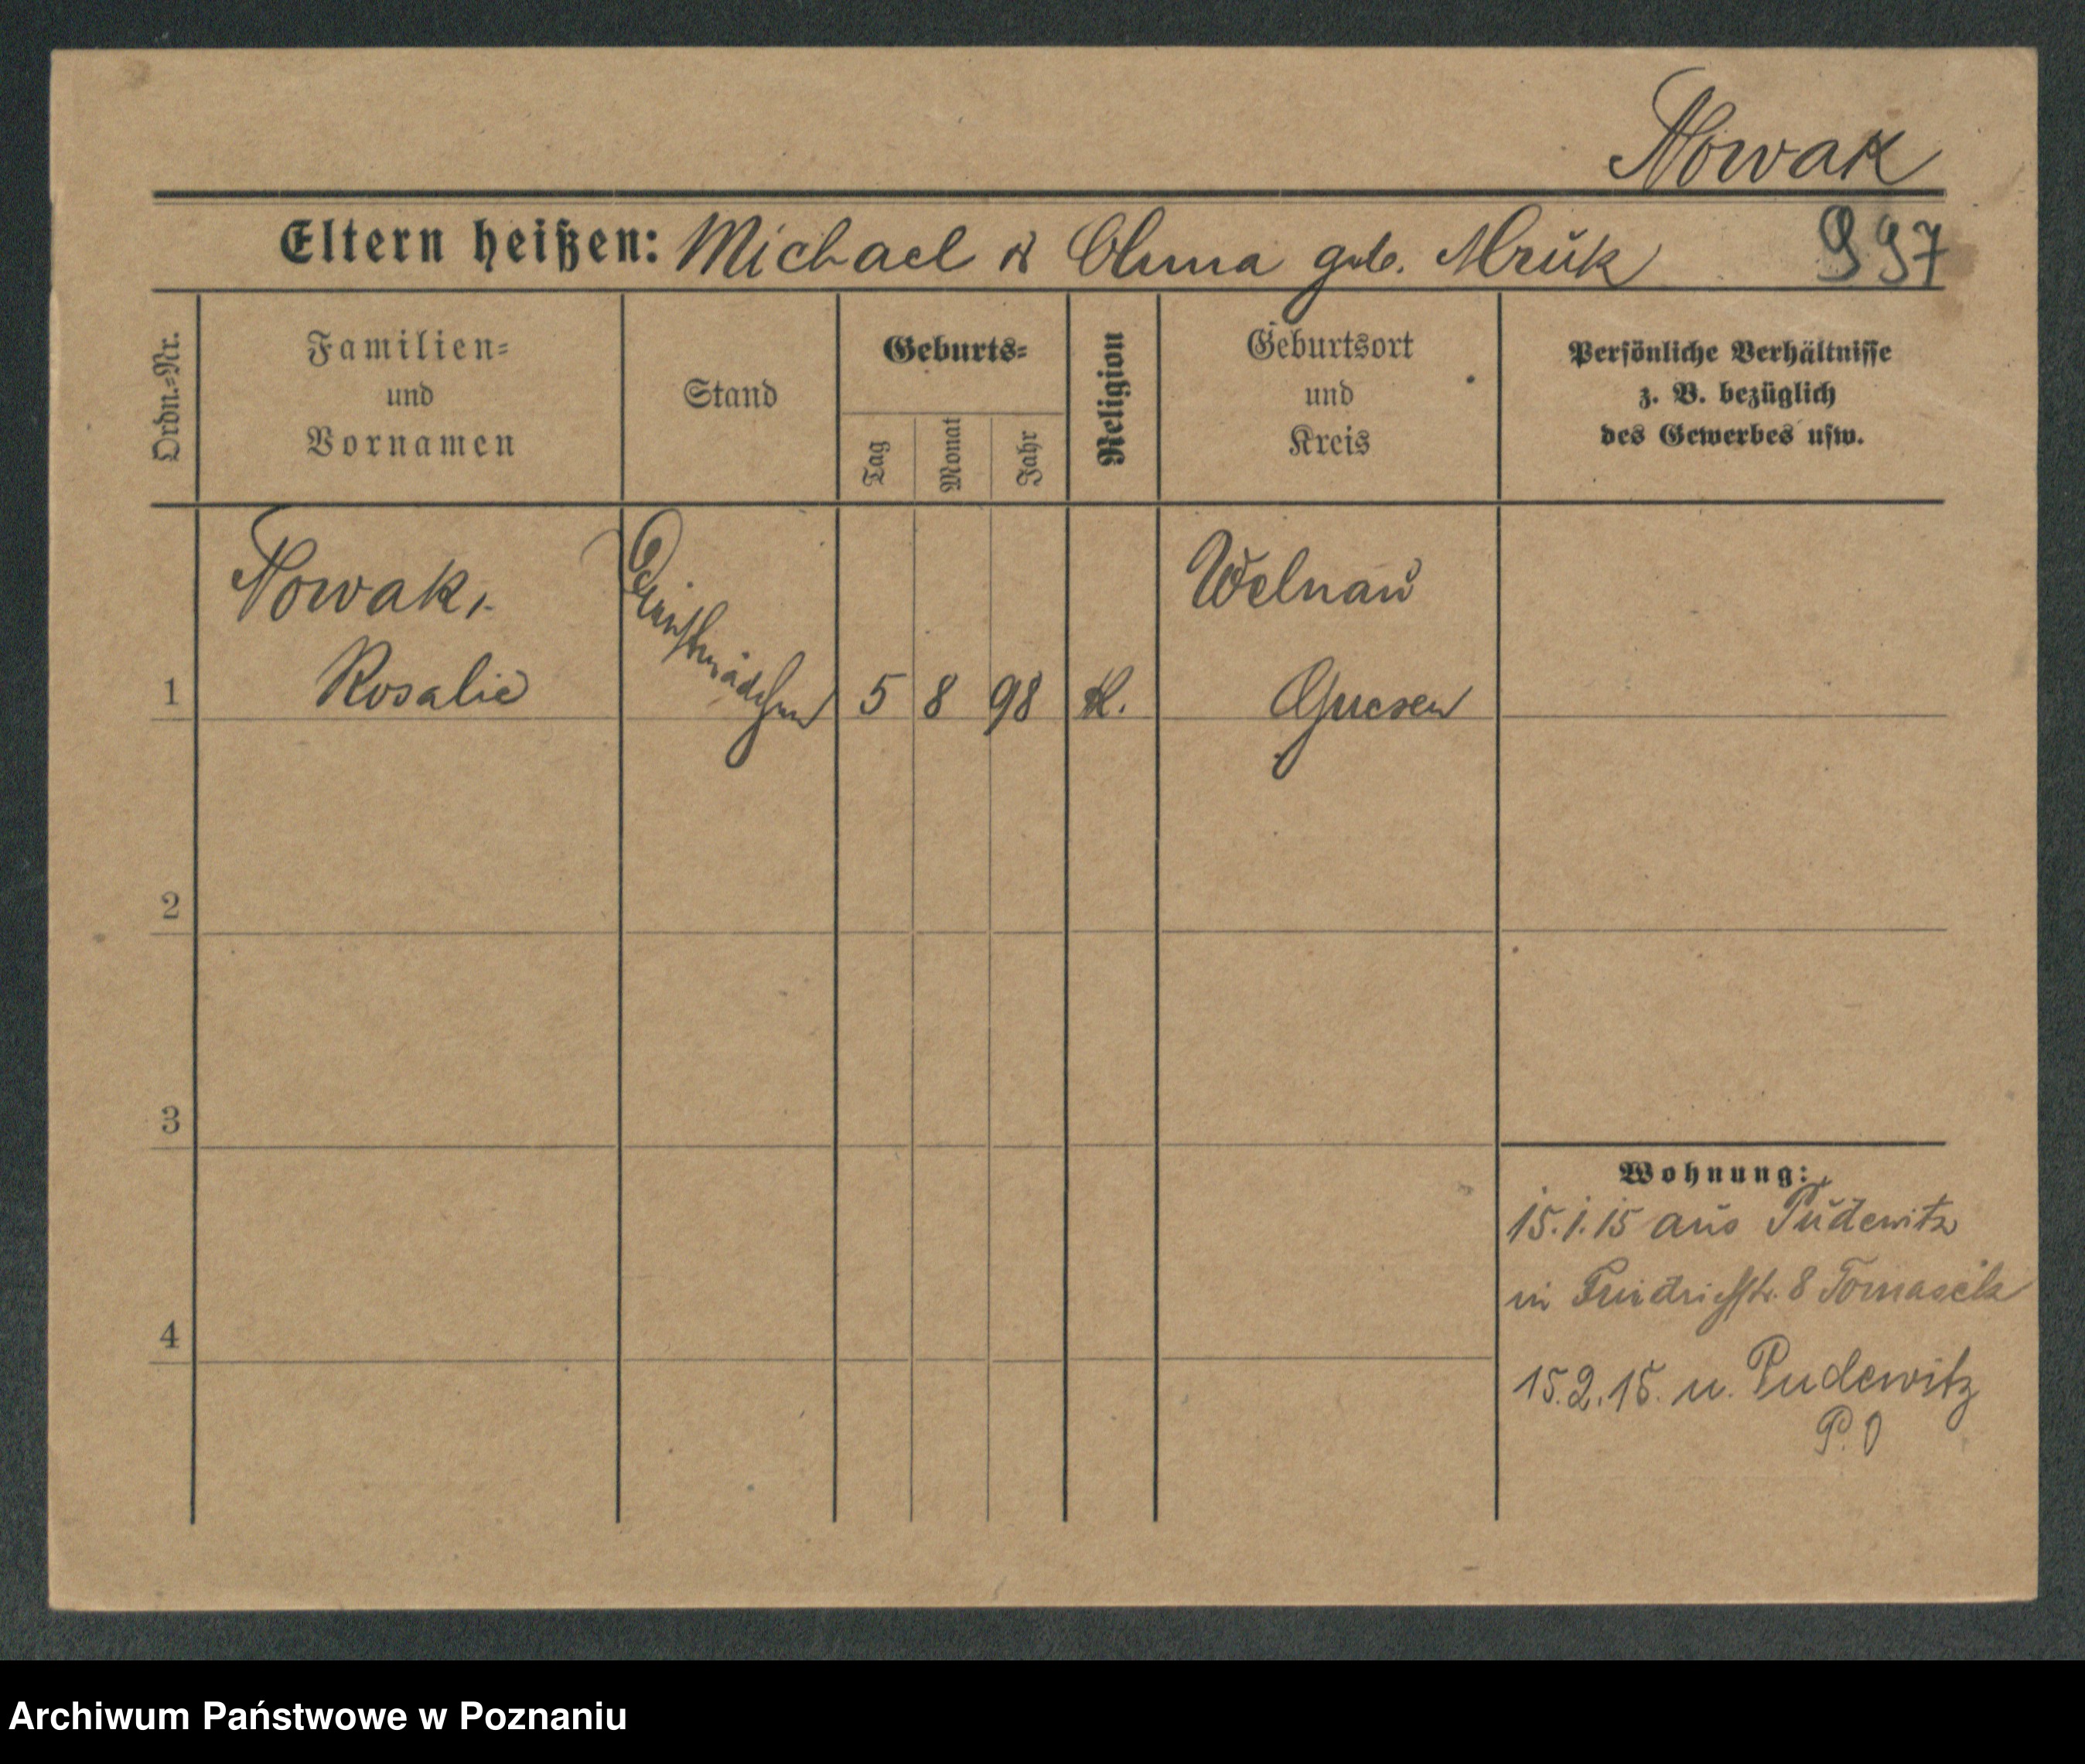 Nowak
Eltern heißen: Michael & Anna geb. Mrük 997
Ordn.-Nr.
Familien-
und
Vornamen
Stand
Geburts-
Tag
Monat
Jahr
Religion
Geburtsort
und
Kreis
Persönliche Verhältnisse
z. B. bezüglich
des Gewerbes usw.
Nowak,
Rosalie
Dienstmädchen
1
5 8 98 K.
Welnau
Gnesen
2
3
4
Wohnung:
15.1.15 aus Pudewitz
in Friedrichstr. 8 Tomasek
15.2.15. n. Pudewitz
P. O
Archiwum Państwowe w Poznaniu